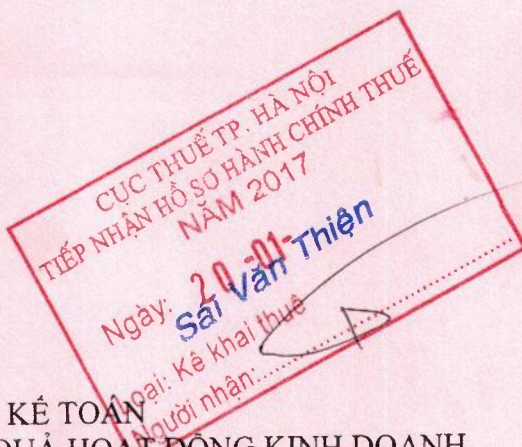 CỤC THUẾ TP. HÀ NỘI
TIẾP NHẬN HỒ SƠ HÀNH CHÍNH THUẾ
NĂM 2017
Ngày: 20-01-
Sái Văn Thiện
Loại: Kê khai thuế
Người nhận:
KẾ TOÁN
QUẢ HOẠT ĐỘNG KINH DOANH